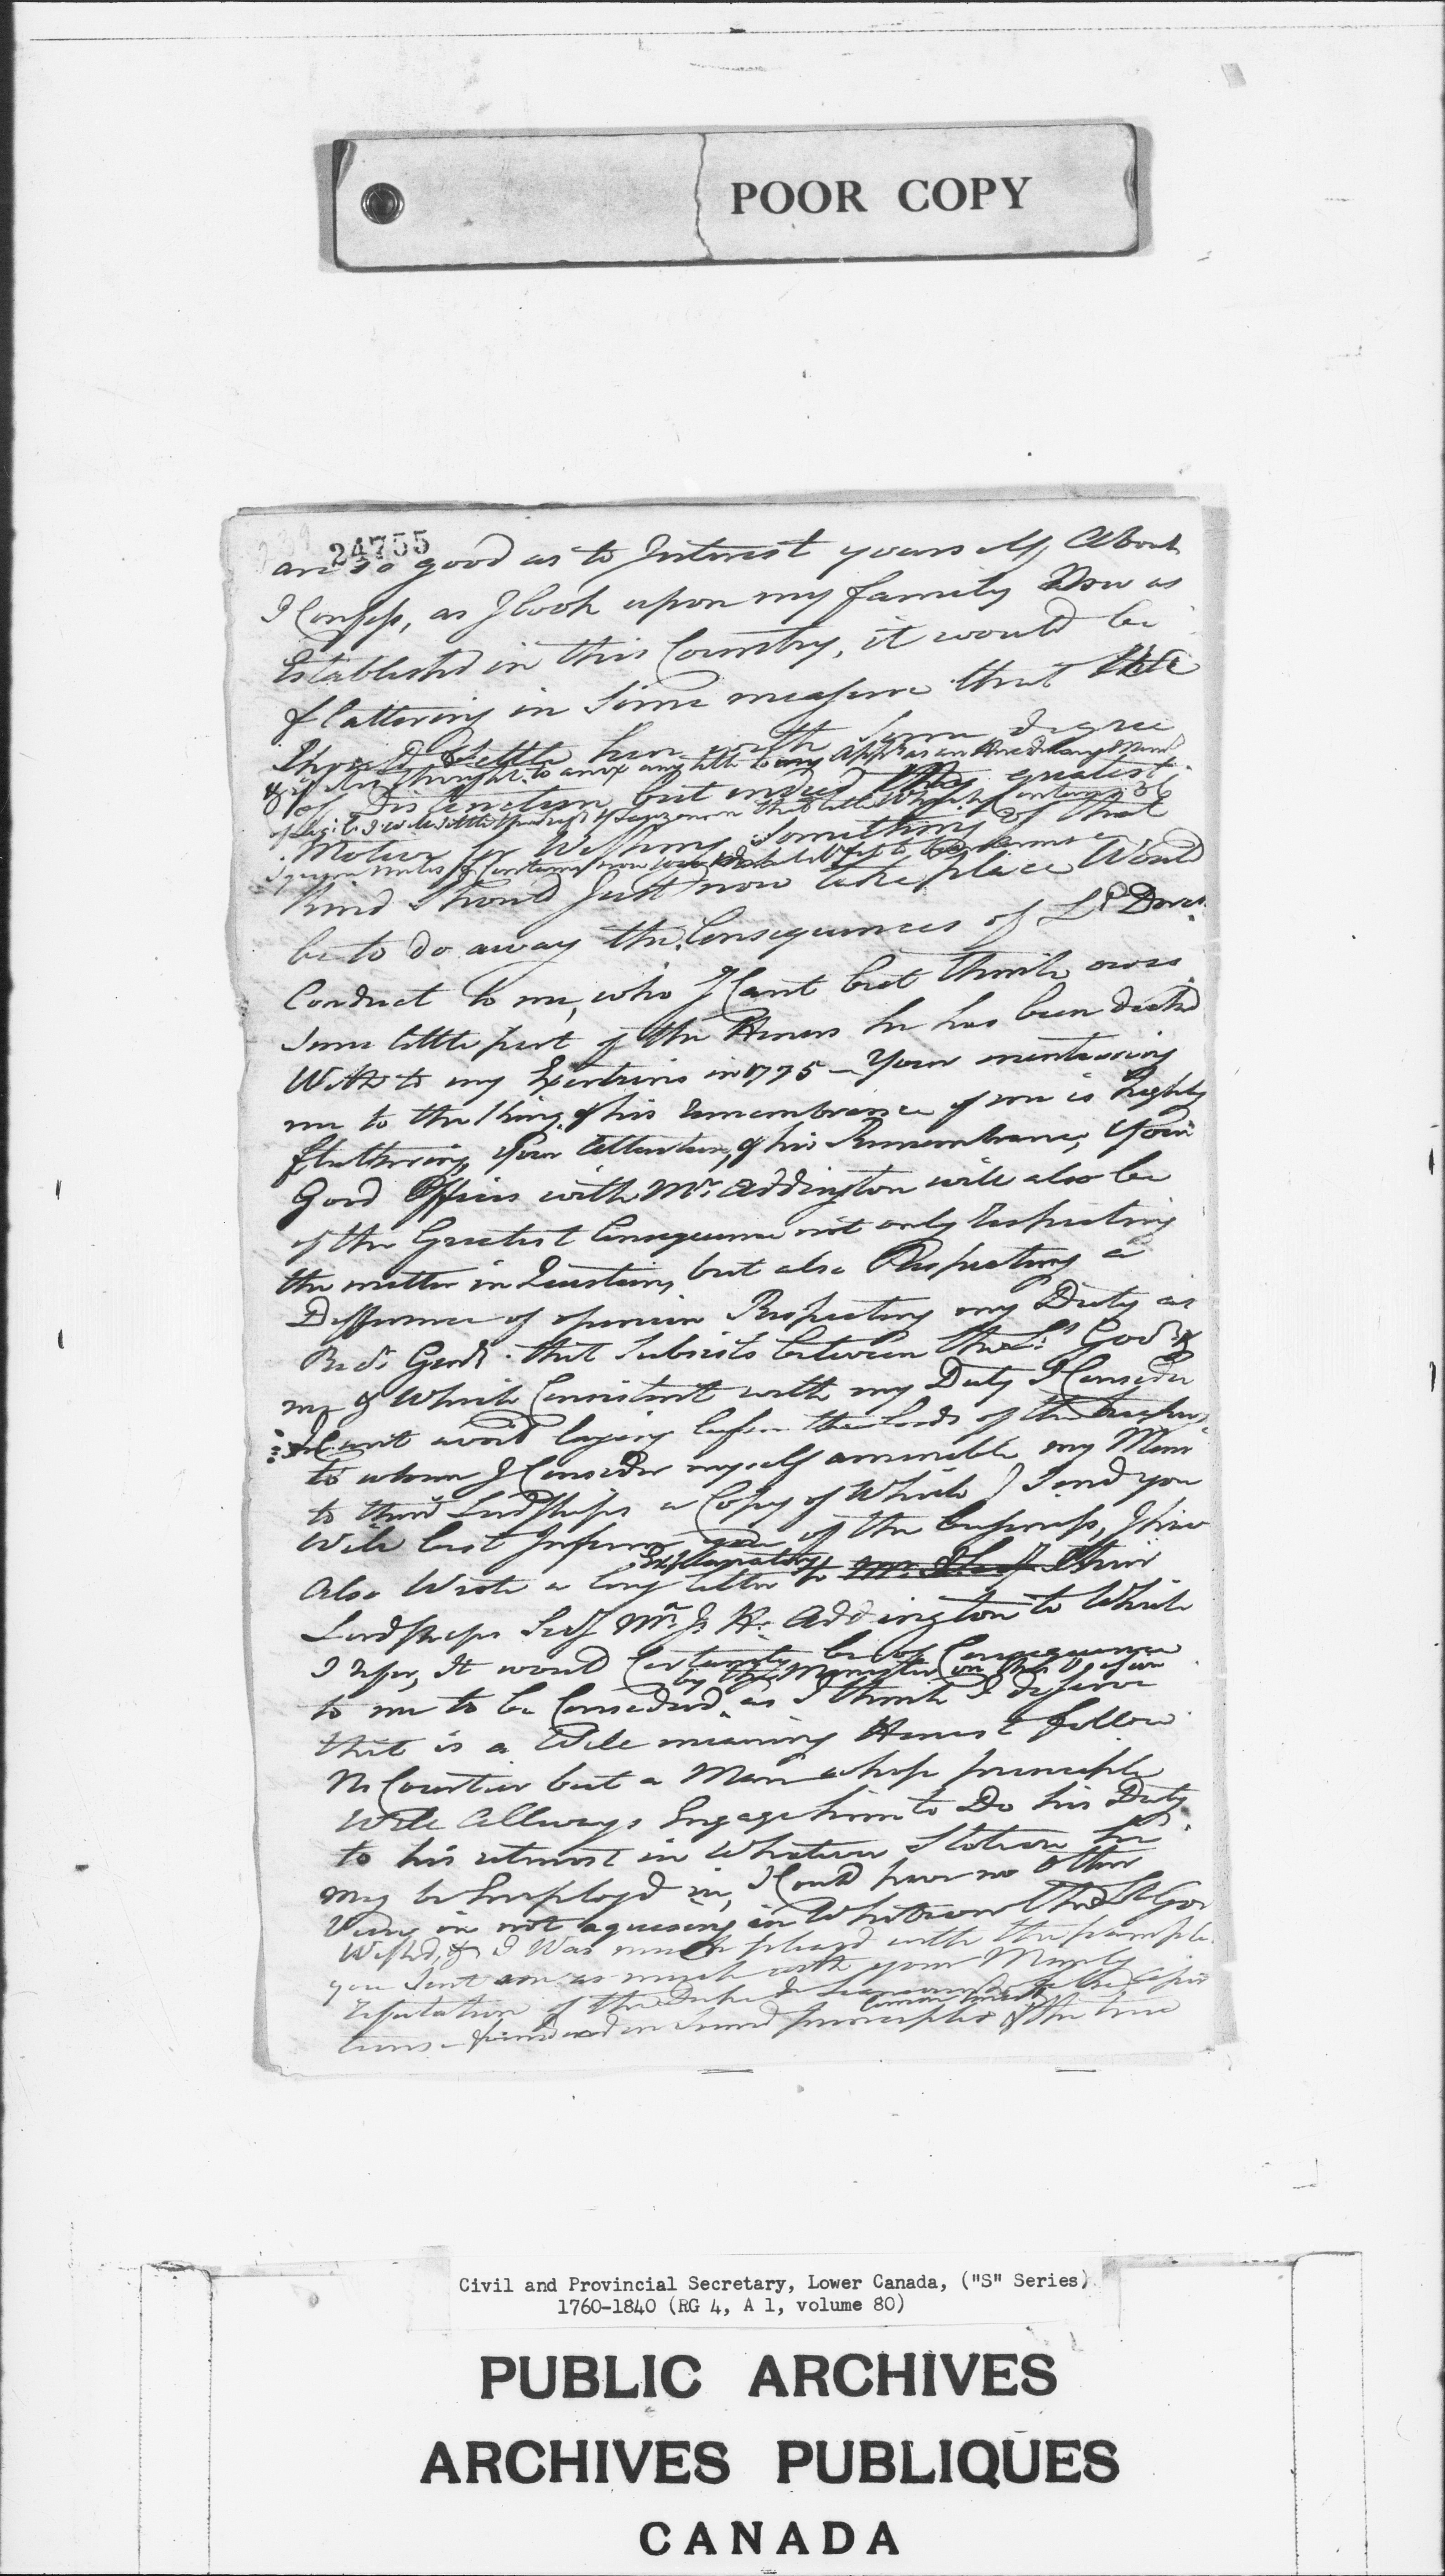 POOR COPY
24755
are so good as to Interest yourself About
I Confess, as I look upon my family Now as
Established in this Country, it would be
flattering in some measure that
I should Settle here with some degree
& if thought to anex any title to
of Distinction, but indeed greatest
Motive for Wishing Something of that
kind should Just now take place Would
be to do away the Consequences of Ld Dorch
Conduct to me, who I Cant but think owes
some little part of the Honors he has been decked
With to my Exertions in 1775 — Your mentioning
me to the King & his remembrance of me is highly
flattering, Your Attention, & his Remembrance, Your
Good Offices with Mr. Addington will also be
of the Greatest Consequence not only Respecting
the matter in Question, but also Respecting a
Difference of opinion Respecting my Duty as
Recr. Genl. that Subsists between the Lt. Govr. &
me & Which Consistent with my Duty I Consider
I Cant avoid laying before the Lords of the Treasury
to whom I Consider myself amenable my Meml
to their Lordships a Copy of Which I send you
Will best Inform you of the business, I have
Explanatory
Also Wrote a long letter to their
Lordships Secy Mr. J. H. Addington to Which
I refer, It would Certainly be of Consequence
by the Minister on this Occasion
to me to be Considered as I think I deserve
that is a Well meaning Honest fellow
No Courtier but a Man whose principle
Will Allways Engage him to Do his Duty
to his utmost in Whatever Station he
may be Employd in, I Could have no other
View in not aquiescing in Whatever the Lt Gov
Wished, & I Was much pleased with the pamphlet
you sent me as much with your
refutation of the Duke de
founded on sound principles of the true
Civil and Provincial Secretary, Lower Canada, ("S" Series)
1760-1840 (RG 4, A 1, volume 80)
PUBLIC ARCHIVES
ARCHIVES PUBLIQUES
CANADA